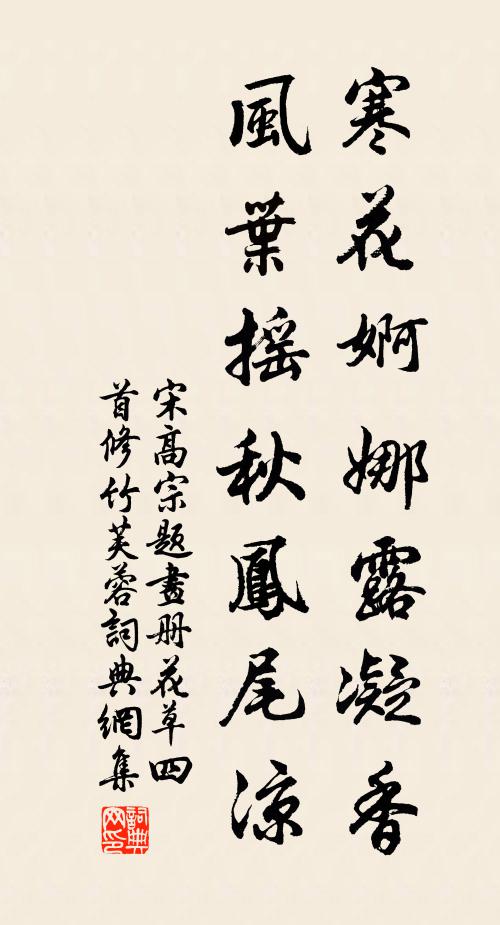 寒花婀娜露凝香
風葉搖秋鳳尾涼
宋高宗題畫册花草四
首修竹芙蓉詞典網集
詞典
网印